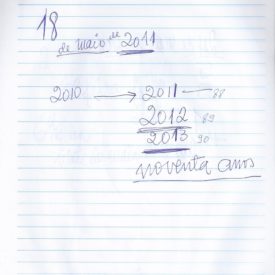 18
de maio de 2011
2010 → 2011 — 88
2012 89
2013 90
noventa anos